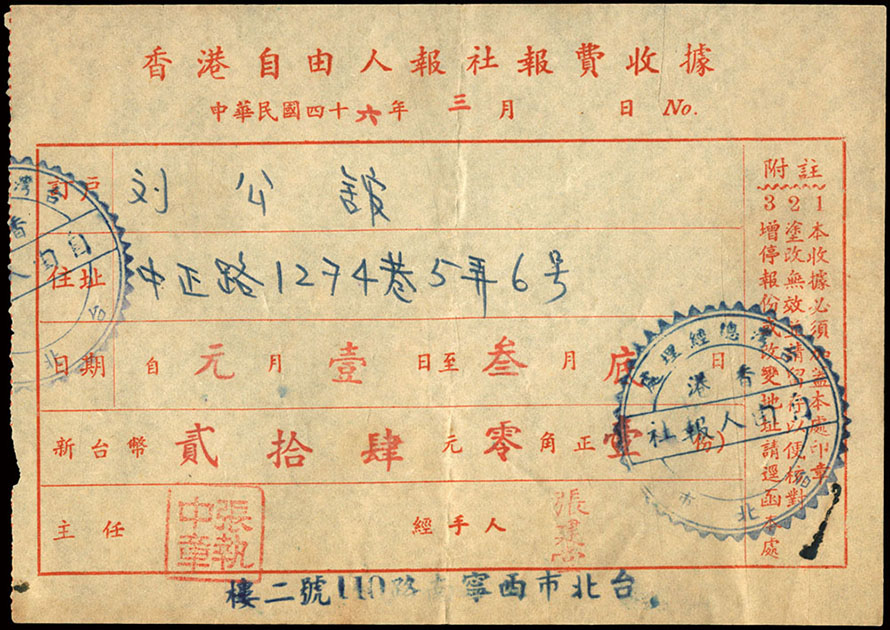 香港自由人報社報費收據
中華民國四十六年 三月 日 No.
訂戶 刘公舘
住址 中正路1274巷5弄6号
日期 自元月壹日至叁月底日
新台幣貳拾肆元零角正 壹份)
主任 張執中章 經手人 張建
附註
1 本收據必須加蓋本處印章
2 塗改無效請留存以便核對
3 增停報份或改變地址請逕函本處
香港
自由人報社
台灣總經理處
台北市
台北市西寧南路110號二樓